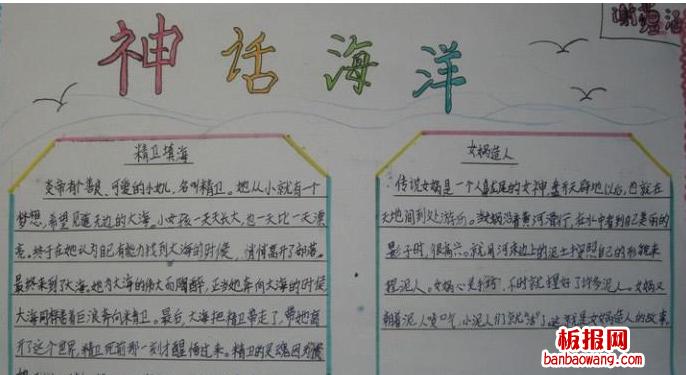 神话海洋
精卫填海
炎帝有个善良、可爱的小女儿,名叫精卫。她从小就有一个
梦想,希望见一见无边的大海。小女孩一天天长大,也一天比一天漂
亮。终于在她认为自己有能力找到大海的时候,悄悄离开了部落。
最终来到了大海。她为大海的伟大而陶醉,正当她奔向大海的时候
大海同样卷着巨浪奔向来精卫。最后,大海把精卫带走了,带她离
开了这个世界,精卫死前那一刻才醒悟过来。精卫的灵魂因为
女娲造人
传说女娲是一个人首龙尾的女神,盘古开天辟地以后,她就在
天地间到处游历。当女娲沿着黄河滑行,在水中看到自己美丽的
影子时,很高兴。就用河床边上的泥土按照自己的形貌来
捏泥人。女娲心灵手巧,不时就捏好了许多泥人。女娲又
朝着泥人喷口气,小泥人们就"活"了。这就是女娲造人的故事。
板报网
banbaowang.com